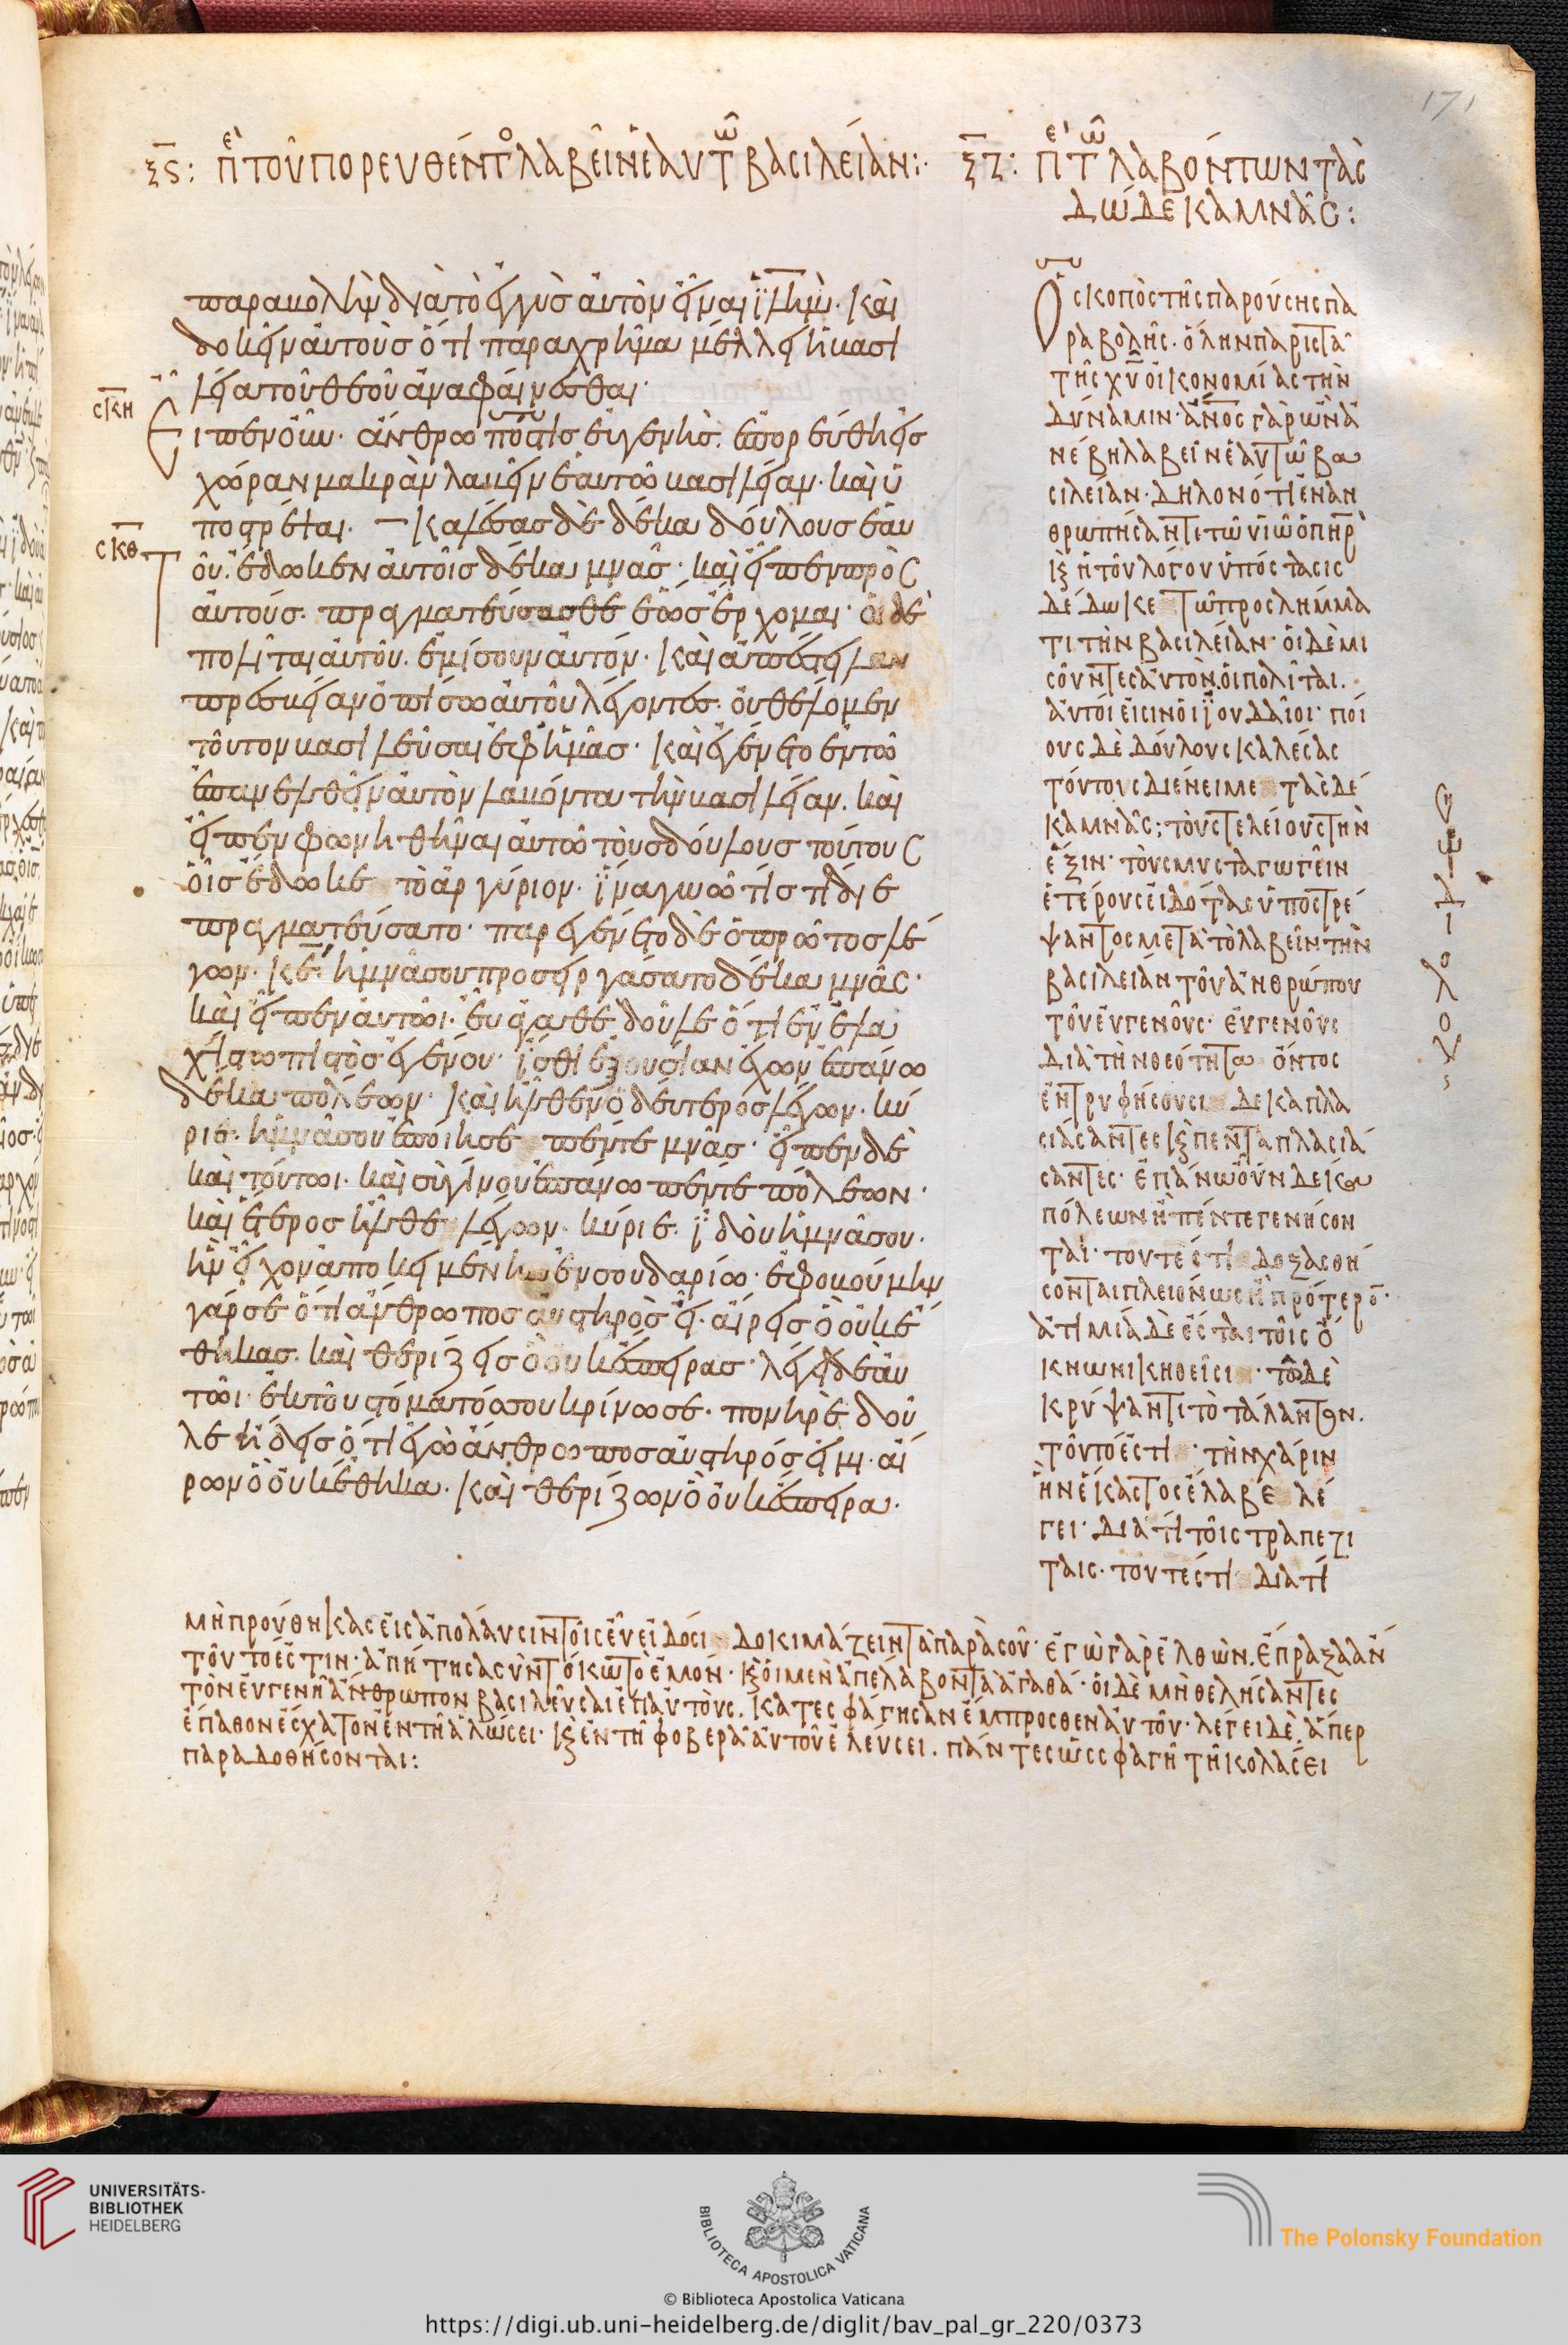 171
ξϛ: ἐπὶ τοῦ πορευθέντο λαβεῖν ἑαυτῶ βασιλείαν:
ξζ: ἐπὶ τῶ λαβόντων τὰς
δώδεκα μνᾶς:
παραβολὴν διὰ τὸ ἐγγὺς αὐτὸν εἶναι ϊλημ. καὶ
δοκεῖν αὐτοὺς ὅτι παραχρῆμα μέλλει ἡ βασι
λεία τοῦ θεοῦ ἀναφαίνεσθαι·
σκη
Εἶπεν οὖν. ἄνθρωπός τις εὐγενὴς. ἐπορεύθη εἰς
χώραν μακρὰν λαβεῖν ἑαυτῶ βασιλείαν. καὶ ὑ
ποστρέψαι. καλέσας δὲ δέκα δούλους ἑαυ
σκθ
τοῦ. ἔδωκεν αὐτοῖς δέκα μνᾶς. καὶ εἶπεν πρὸς
αὐτούς. πραγματεύσασθε ἕως ἔρχομαι. οἱ δὲ
πολῖται αὐτοῦ. ἐμίσουν αὐτόν. καὶ ἀπέστειλαν
πρεσβείαν ὀπίσω αὐτοῦ λέγοντες. οὐ θέλομεν
τοῦτον βασιλεῦσαι ἐφ ἡμᾶς. καὶ ἐγένετο ἐν τῶ
ἐπανελθεῖν αὐτὸν λαβόντα τὴν βασιλείαν. καὶ
εἶπεν φωνηθῆναι αὐτῶ τοὺς δούλους τούτους
οἷς ἔδωκε τὸ ἀργύριον. ἵνα γνῶ τίς τί διε
πραγματεύσατο. παρεγένετο δὲ ὁ πρῶτος λέ
γων. κε ἡ μνᾶ σου προσειργάσατο δέκα μνᾶς.
καὶ εἶπεν αὐτῶι. εὖ ἀγαθὲ δοῦλε ὅτι ἐν ἐλα
χίστω πιστὸς ἐγένου. ἴσθι ἐξουσίαν ἔχων ἐπάνω
δέκα πόλεων. καὶ ἦλθεν ὁ δεύτερος λέγων. κύ
ριε. ἡ μνᾶ σου ἐποίησε πέντε μνᾶς. εἶπεν δὲ
καὶ τούτωι. καὶ σὺ γίνου ἐπάνω πέντε πόλεων.
καὶ ἕτερος ἦλθε λέγων. κύριε. ἰδοὺ ἡ μνᾶ σου.
ἣν εἶχον ἀποκειμένην ἐν σουδαρίω. ἐφοβούμην
γάρ σε ὅτι ἄνθρωπος αὐστηρὸς εἶ. αἴρεις ὃ οὐκ ἔ
θηκας. καὶ θερίζεις ὃ οὐκ ἔσπειρας. λέγει δὲ αὐ
τῶι. ἐκ τοῦ στόματός σου κρίνω σε. πονηρὲ δοῦ
λε ᾔδεις ὅτι ἐγὼ ἄνθρωπος αὐστηρός εἰμι. αἴ
ρων ὃ οὐκ ἔθηκα. καὶ θερίζων ὃ οὐκ ἔσπειρα.
Ὁ σκοπὸς τῆς παρούσης πα
ραβολῆς. ὅλην παριστᾶ
τῆς χυ οἰκονομίας τὴν
δύναμιν. ἄνος γὰρ ὢν ἀ
νέβη λαβεῖν ἑαυτῶ βα
σιλείαν. δηλονότι ἐναν
θρωπήσαντι τῶ υἱῶ ὁ πηρ
κ ἡ τοῦ λόγου ὑπόστασις
δέδωκε τῶ προσλήμμα
τι τὴν βασιλείαν. οἱ δὲ μι
σοῦντες αὐτὸν οἱ πολῖται.
αὐτοί εἰσιν οἱ ϊουδαῖοι. ποί
ους δὲ δούλους καλέσας
τούτοις διένειμε τὰς δέ
κα μνᾶς; τοὺς τελείους τὴν
ἕξιν. τοὺς μυσταγωγεῖν
ἑτέρους εἰδότας ὑποστρέ
ψαντος μετὰ τὸ λαβεῖν τὴν
βασιλείαν τοῦ ἀνθρώπου
τοῦ εὐγενοῦς. εὐγενοῦς
διὰ τὴν θεότητα ὄντος
ἐντρυφήσουσι δεκαπλα
σιάσαντες κ πενταπλασιά
σαντες. ἐπάνω οὖν δέκα
πόλεων ἢ πέντε γενήσον
ται. τουτέστι δοξασθή
σονται πλειόνως ἢ πρότερο.
ἀτιμία δὲ ἔσται τοῖς ὀ
κνω νικηθεῖσι. τῶ δὲ
κρύψαντι τὸ τάλαντον.
τοῦτό ἐστι τὴν χάριν
ἣν ἕκαστος ἔλαβε λέ
γει. διὰ τί τοῖς τραπεζι
ταις. τουτέστι διὰ τί
μὴ προύθηκας εἰς ἀπόλαυσιν τοῖς εὖ εἰδόσι δοκιμάζειν τὰ παρὰ σοῦ. ἐγὼ γὰρ ἐλθὼν. ἔπραξα ἂν
τοῦτό ἐστιν. ἀπῄτησα σὺν τόκω τὸ ἐμόν. κ οἱ μὲν ἀπέλαβον τὰ ἀγαθά. οἱ δὲ μὴ θελήσαντες
τὸν εὐγενῆ ἄνθρωπον βασιλεῦσαι ἐπ αὐτοὺς. κατεσφάγησαν ἔμπροσθεν αὐτοῦ. λέγει δὲ ἅπερ
ἔπαθον ἔσχατον ἐν τῆ ἁλώσει. κ ἐν τῆ φοβερᾶ αὐτοῦ ἐλεύσει. πάντες ὡς σφαγῆ τῆ κολάσει
παραδοθήσονται:
UNIVERSITÄTS-
BIBLIOTHEK
HEIDELBERG
BIBLIOTECA APOSTOLICA VATICANA
The Polonsky Foundation
© Biblioteca Apostolica Vaticana
https://digi.ub.uni-heidelberg.de/diglit/bav_pal_gr_220/0373